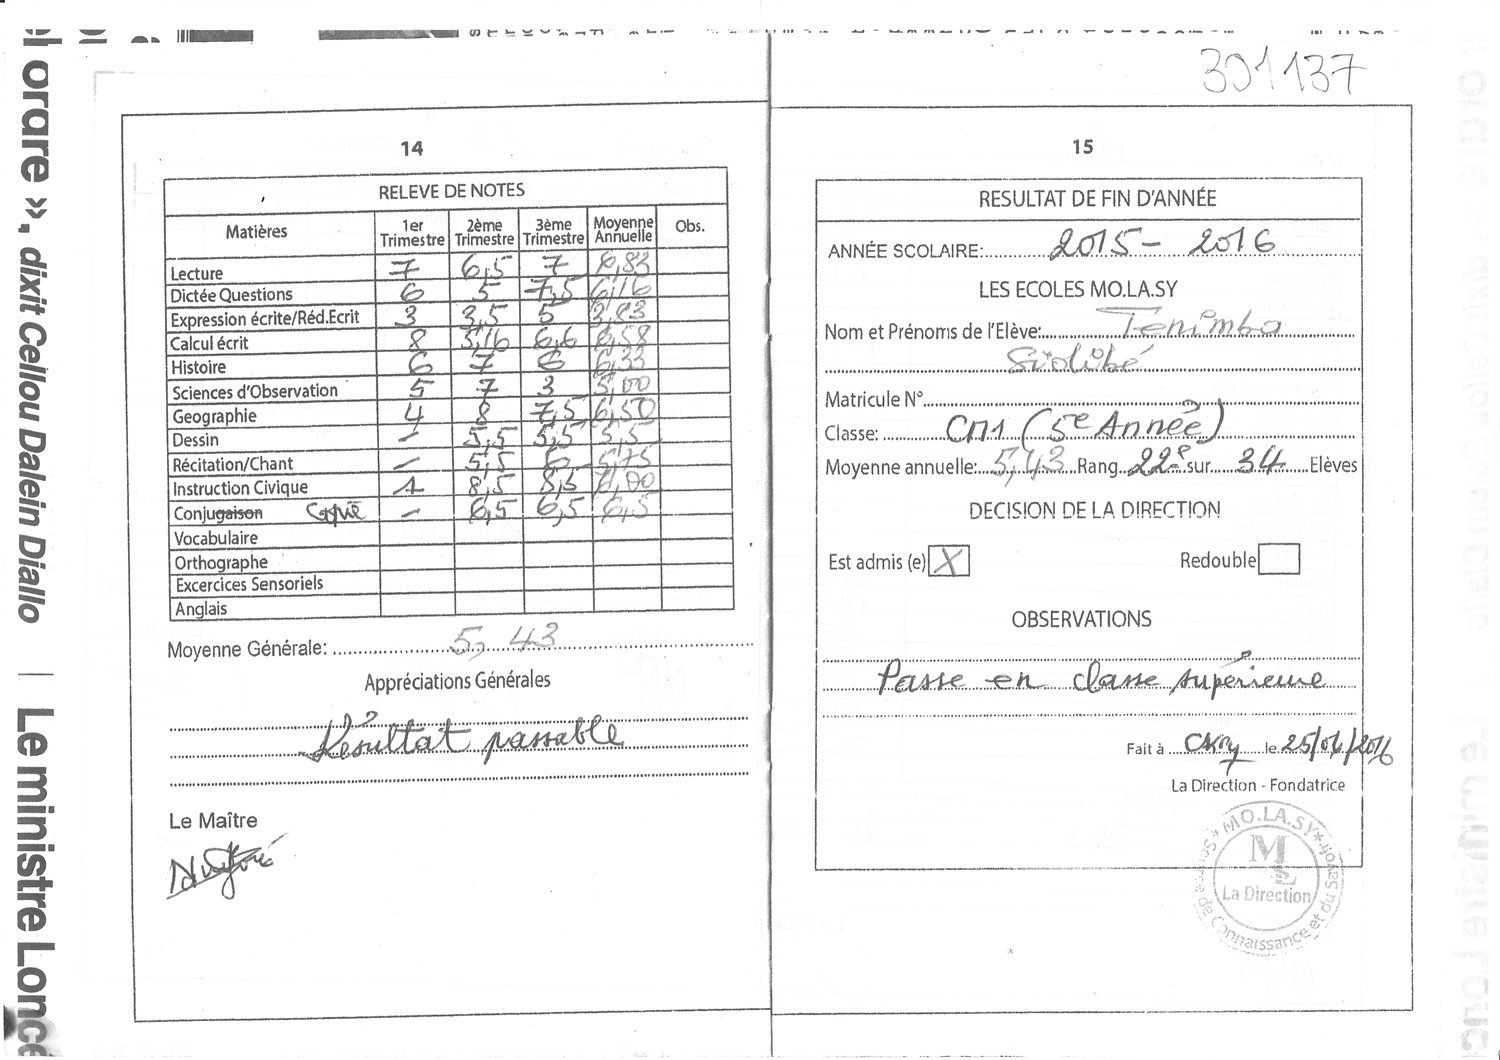 orare », dixit Cellou Dalein Diallo | Le ministre Lonc
301137
14
RELEVE DE NOTES
Matières 1er Trimestre 2ème Trimestre 3ème Trimestre Moyenne Annuelle Obs.
Lecture 7 6,5 7 6,83
Dictée Questions 6 5 7,5 6,16
Expression écrite/Réd.Ecrit 3 3,5 5 3,83
Calcul écrit 8 5,16 6,6 6,58
Histoire 6 7 6 6,33
Sciences d'Observation 5 7 3 5,00
Geographie 4 8 7,5 6,50
Dessin - 5,5 5,5 5,5
Récitation/Chant - 5,5 6 5,75
Instruction Civique 1 8,5 8,5 6,00
Conjugaison Copie - 6,5 6,5 6,5
Vocabulaire
Orthographe
Excercices Sensoriels
Anglais
Moyenne Générale: 5,43
Appréciations Générales
Résultat passable
Le Maître
15
RESULTAT DE FIN D'ANNÉE
ANNÉE SCOLAIRE: 2015 - 2016
LES ECOLES MO.LA.SY
Nom et Prénoms de l'Elève: Tenimba
Sidibé
Matricule N°
Classe: CM1 (5e Année)
Moyenne annuelle: 5,43 Rang 22e sur 34 Elèves
DECISION DE LA DIRECTION
Est admis (e) X Redouble
OBSERVATIONS
Passe en classe supérieure
Fait à CKry le 25/06/2016
La Direction - Fondatrice
MO.LA.SY
La Direction
Source de Connaissance et du Savoir